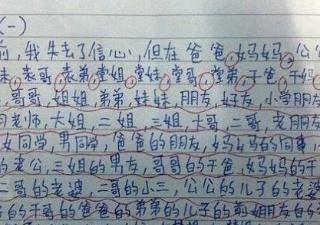 (一)
前,我失去了信心,但在爸爸,妈妈,公公
妹,表哥,表弟,堂姐,堂妹,堂哥,堂弟,干爸,干妈
,哥哥,姐姐,弟弟,妹妹,朋友,好友,小学朋友
同老师,大姐,二姐,三姐,大哥,二哥,老朋友
女同学,男同学,爸爸的朋友,妈妈的同事,
的老公,三姐的男友,哥哥的干爸,妈妈的干
二哥的老婆,二哥的小三,公公的儿子的老婆
的干哥的爸爸的弟弟的儿子的前女朋友的